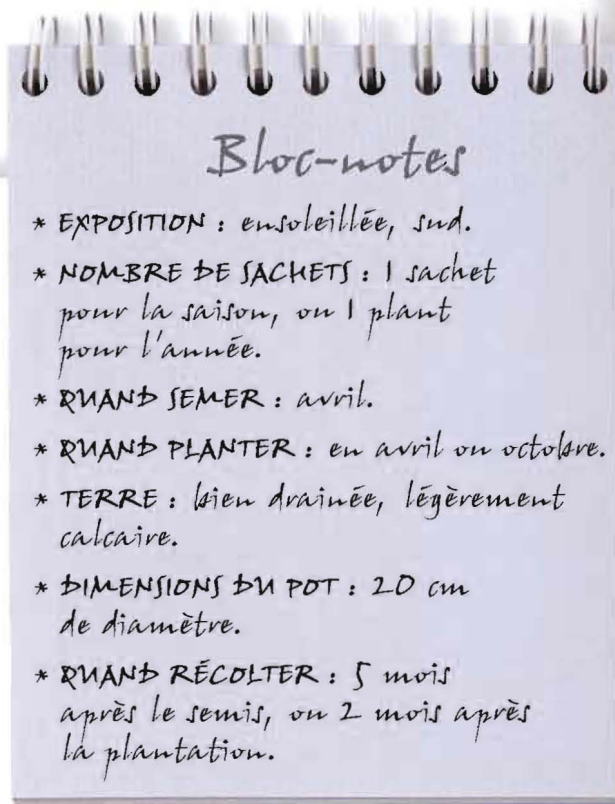 Bloc-notes
* EXPOSITION : ensoleillée, sud.
* NOMBRE DE SACHETS : 1 sachet
pour la saison, ou 1 plant
pour l'année.
* QUAND SEMER : avril.
* QUAND PLANTER : en avril ou octobre.
* TERRE : bien drainée, légèrement
calcaire.
* DIMENSIONS DU POT : 20 cm
de diamètre.
* QUAND RÉCOLTER : 5 mois
après le semis, ou 2 mois après
la plantation.